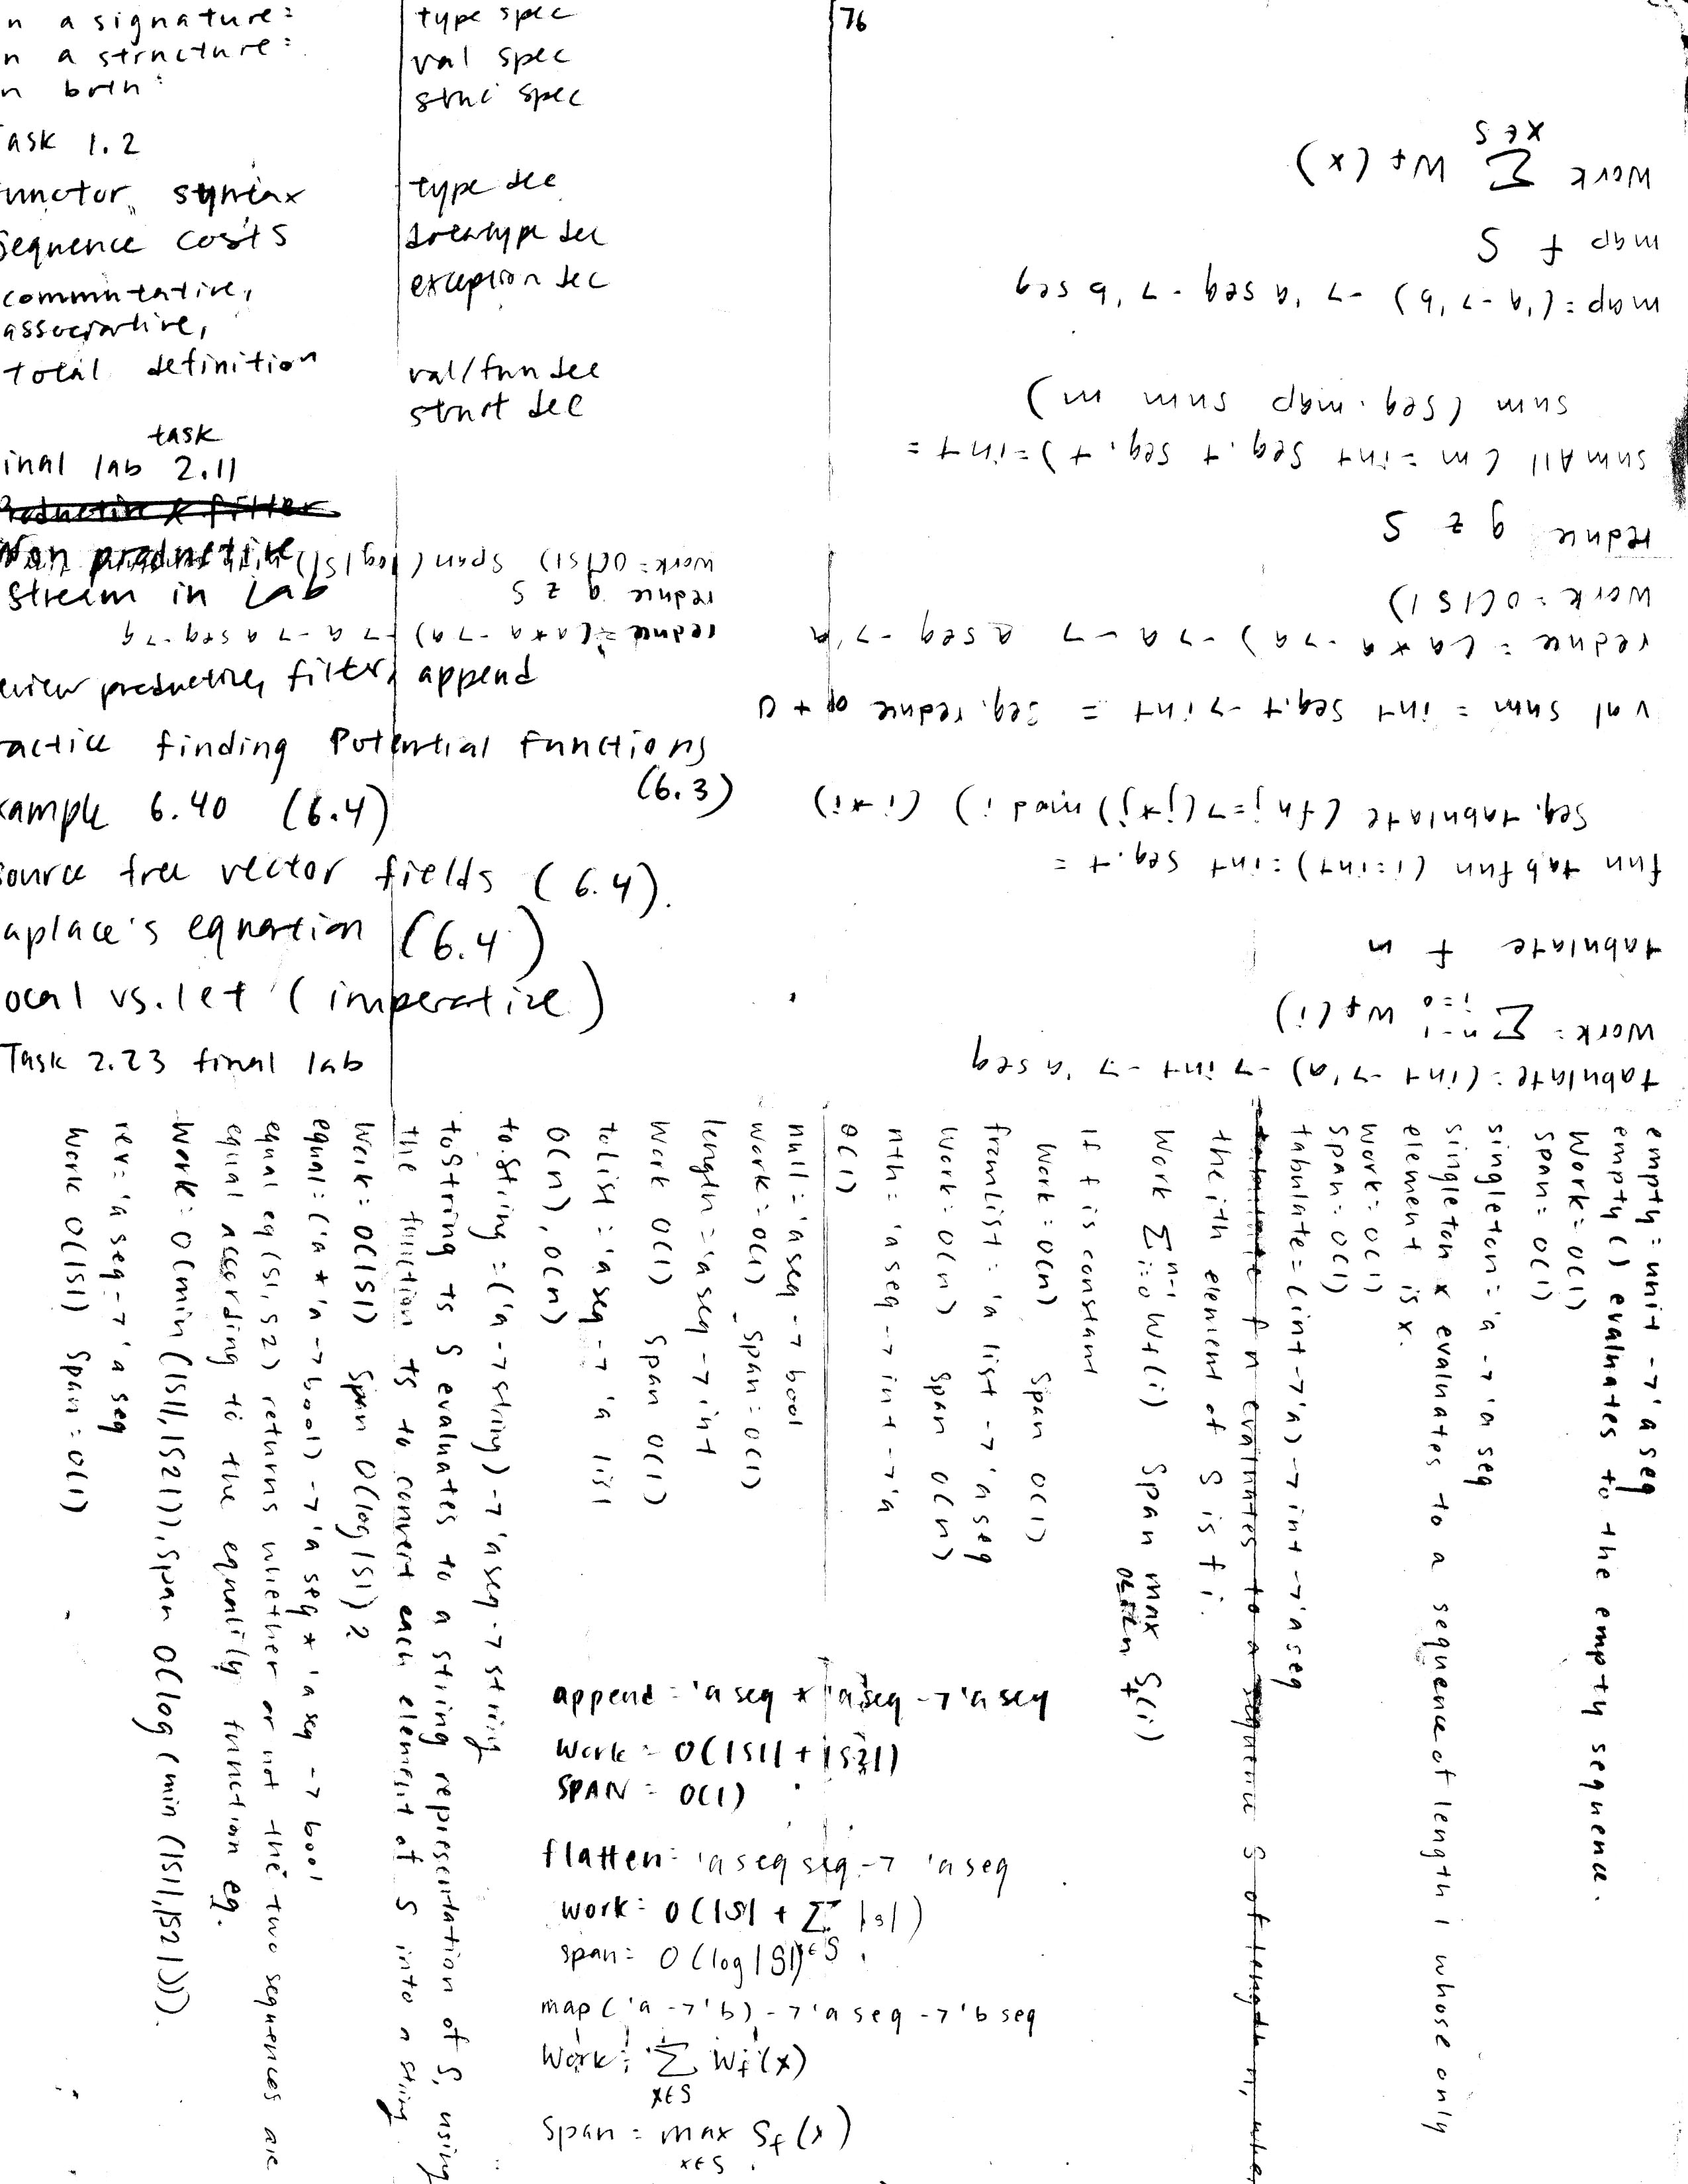 n a signature:
n a structure:
n both:
Task 1.2
functor syntax
sequence costs
commutative,
associative,
total definition
task
final lab 2.11
Non productive
stream in Lab
review productive, filter, append
practice finding Potential Functions
(6.3)
example 6.40 (6.4)
source free vector fields (6.4).
Laplace's equation (6.4)
local vs. let (imperative)
Task 2.23 final lab
type spec
val spec
struc spec
type dec
datatype dec
exception dec
val/fun dec
struct dec
76
tabulate: (int -> 'a) -> int -> 'a seq
Work: Σ n-1 i=0 Wf(i)
tabulate f n
fun tabfun (i:int):int seq.t =
Seq.tabulate (fn j => (j*j) mod i) (i*i)
val sum = int Seq.t -> int = Seq.reduce op + 0
reduce: (a*a -> a) -> a -> a seq -> 'a
Work: O(|S|)
reduce g z S
sumAll (m: int Seq.t Seq.t):int =
sum (Seq.map sum m)
map: ('a -> 'b) -> 'a seq -> 'b seq
map f S
Work Σ x∈S Wf(x)
reduce: (a*a -> a) -> a -> a seq -> a
reduce g z S
Work: O(|S|) Span (log|S|)
empty: unit -> 'a seq
empty () evaluates to the empty sequence.
Work: O(1)
Span: O(1)
singleton: 'a -> 'a seq
singleton x evaluates to a sequence of length 1 whose only
element is x.
Work: O(1)
Span: O(1)
tabulate: (int -> 'a) -> int -> 'a seq
tabulate f n evaluates to a sequence S of length n, whe
the ith element of S is f i.
Work Σ n-1 i=0 Wf(i) Span max Sf(i)
If f is constant
Work: O(n) Span O(1)
fromList: 'a list -> 'a seq
Work: O(n) Span O(n)
nth: 'a seq -> int -> 'a
O(1)
null: 'a seq -> bool
Work: O(1) Span: O(1)
length: 'a seq -> int
Work O(1) Span O(1)
toList: 'a seq -> 'a list
O(n), O(n)
toString: ('a -> string) -> 'a seq -> string
toString ts S evaluates to a string representation of S, using
the function ts to convert each element of S into a string.
Work: O(|S|) Span O(log|S|)?
equal: ('a * 'a -> bool) -> 'a seq * 'a seq -> bool
equal eq (S1, S2) returns whether or not the two sequences are
equal according to the equality function eq.
Work: O(min(|S1|,|S2|)), Span O(log(min(|S1|,|S2|))).
rev: 'a seq -> 'a seq
Work O(|S|) Span: O(1)
append: 'a seq * 'a seq -> 'a seq
Work: O(|S1| + |S2|)
SPAN: O(1)
flatten: 'a seq seq -> 'a seq
work: O(|S| + Σ s∈S |s|)
span: O(log|S|)
map ('a -> 'b) -> 'a seq -> 'b seq
Work: Σ x∈S Wf(x)
Span = max x∈S Sf(x)